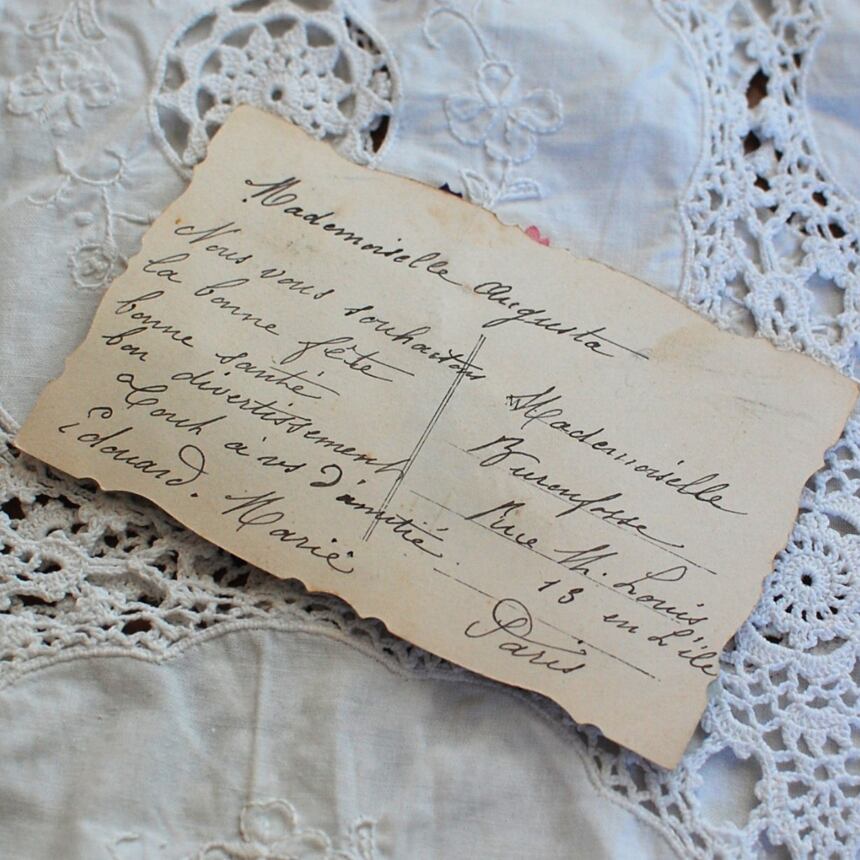 Mademoiselle Augusta
Nous vous souhaitons
la bonne fête
bonne santé
bon divertissement
à vs d'amitié.
Edouard. Marie
Mademoiselle
Rue St. Louis
13 en L'ile
Paris